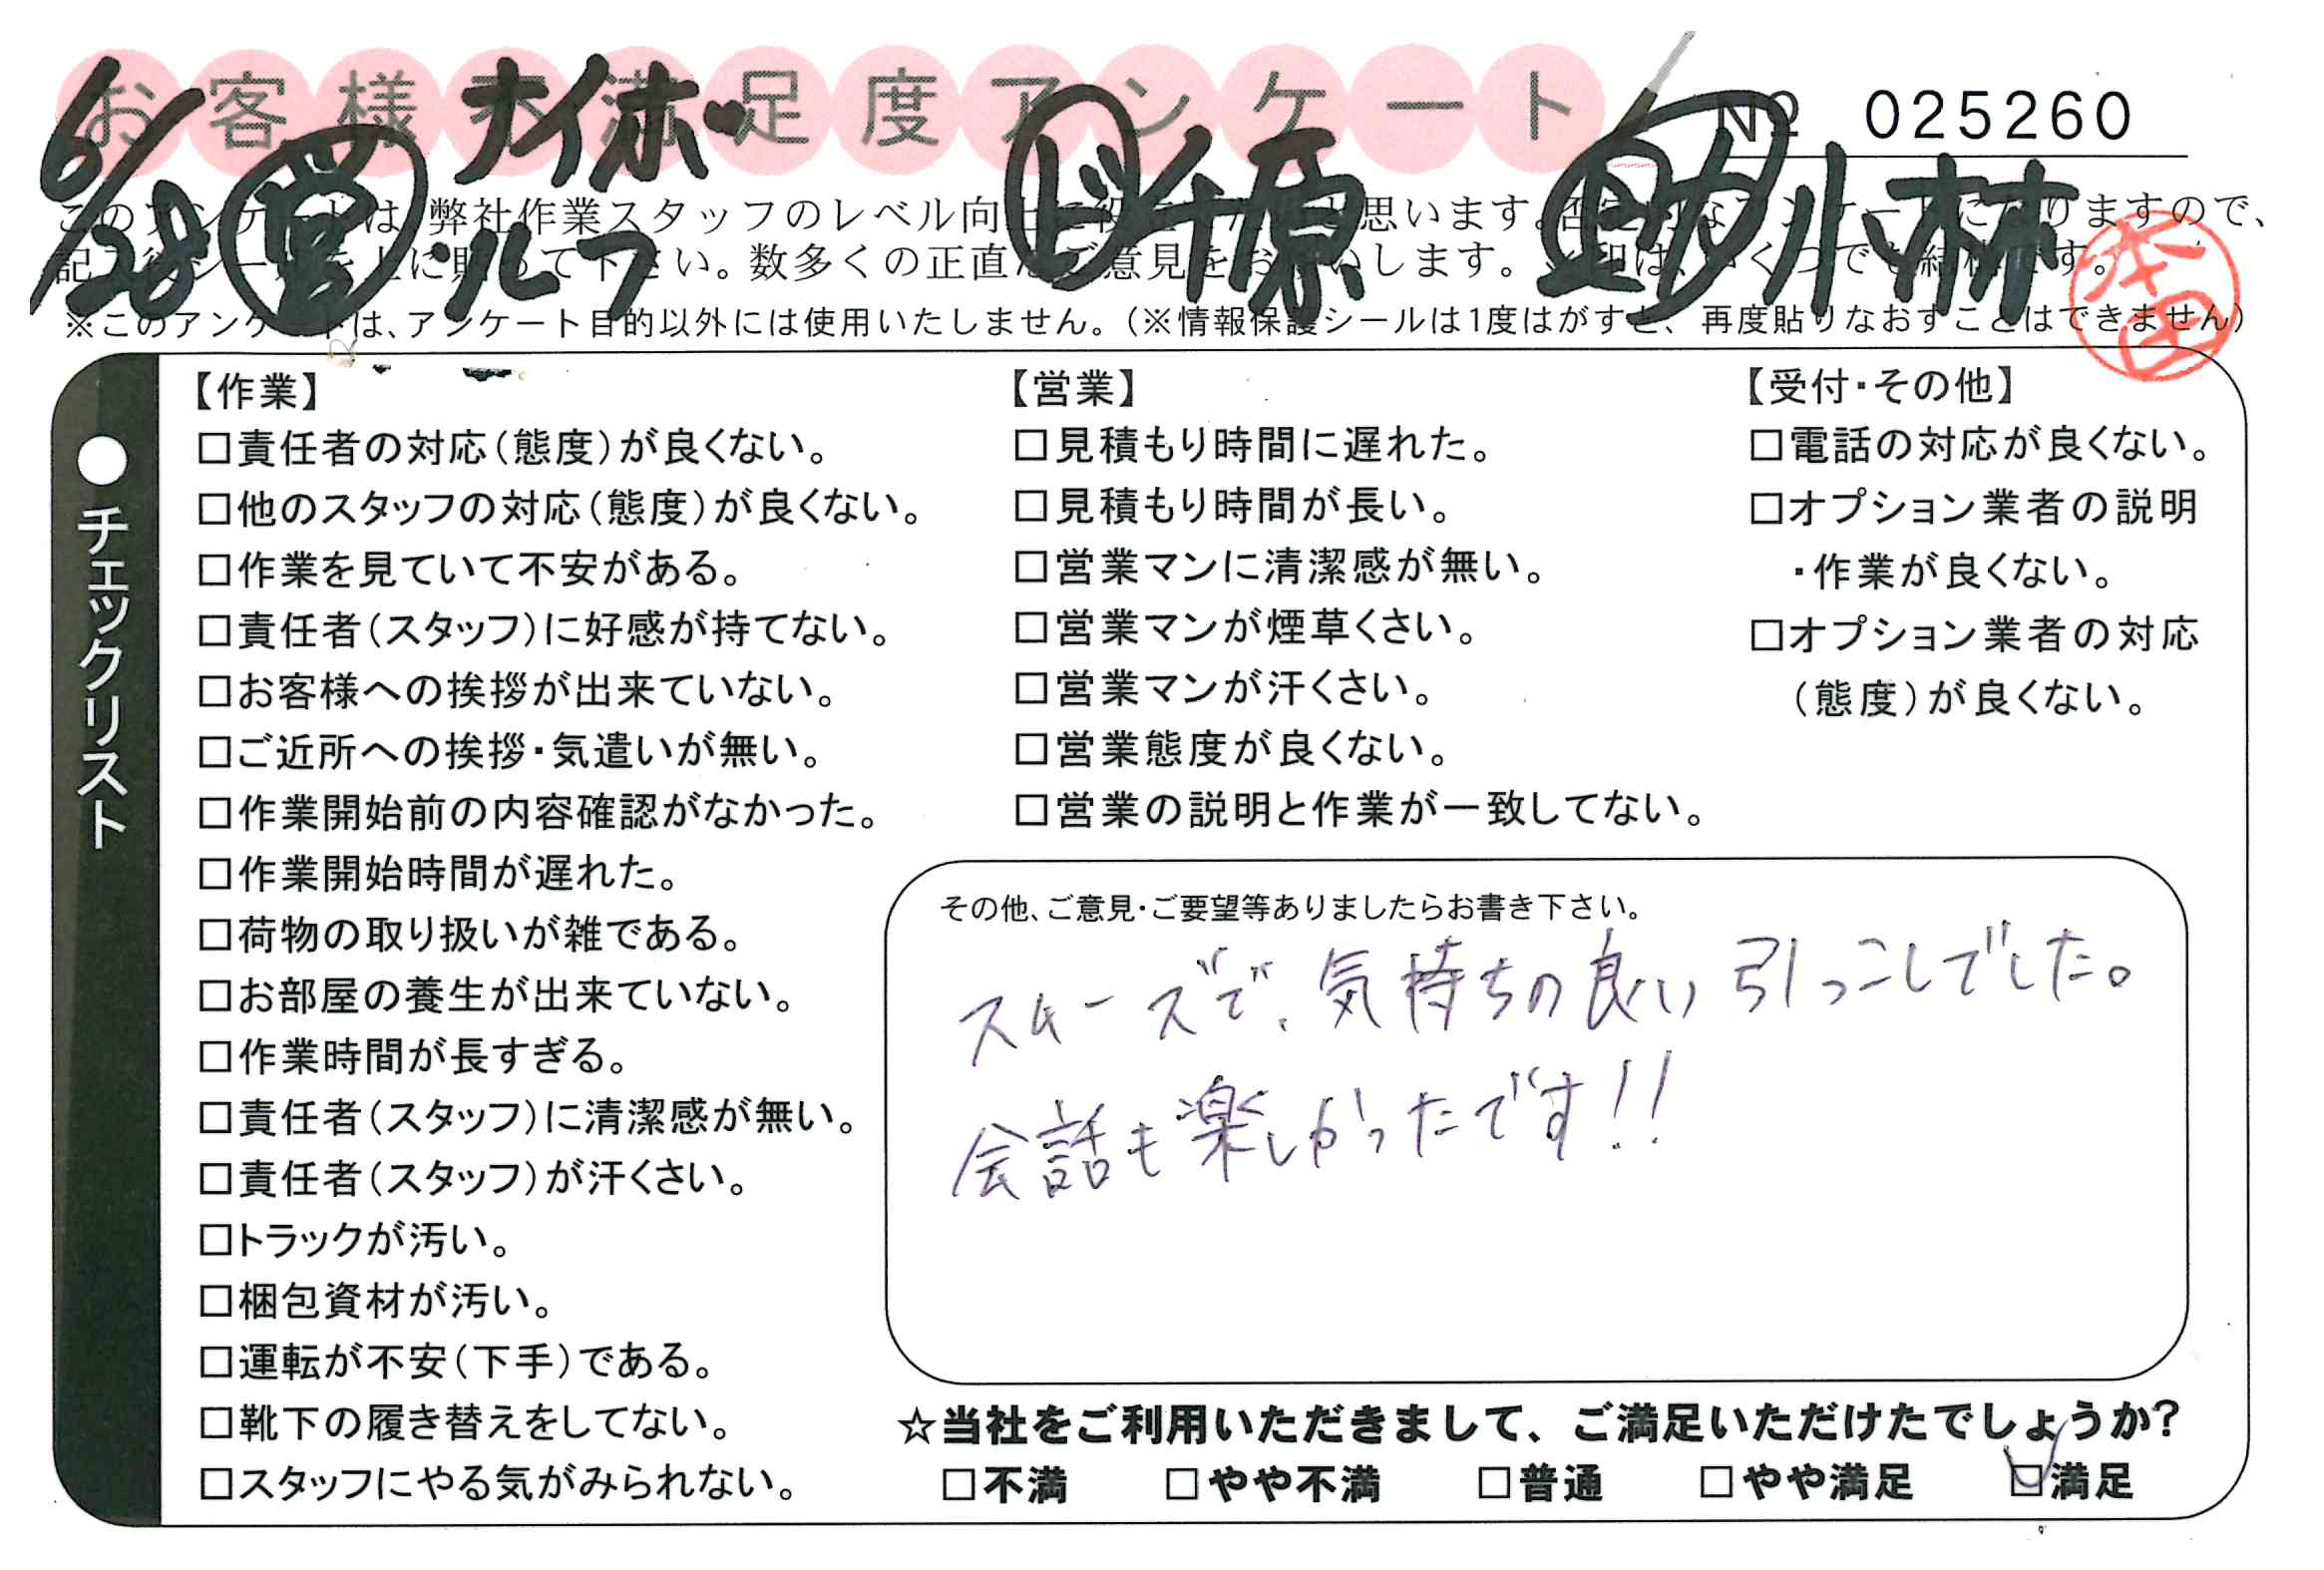 お客様不満足度アンケート
№ 025260
6/28 営 ナイホ・ルフ
千原 助 小林
本田
※このアンケートは、アンケート目的以外には使用いたしません。(※情報保護シールは1度はがすと、再度貼りなおすことはできません)
●チェックリスト
【作業】
□責任者の対応(態度)が良くない。
□他のスタッフの対応(態度)が良くない。
□作業を見ていて不安がある。
□責任者(スタッフ)に好感が持てない。
□お客様への挨拶が出来ていない。
□ご近所への挨拶・気遣いが無い。
□作業開始前の内容確認がなかった。
□作業開始時間が遅れた。
□荷物の取り扱いが雑である。
□お部屋の養生が出来ていない。
□作業時間が長すぎる。
□責任者(スタッフ)に清潔感が無い。
□責任者(スタッフ)が汗くさい。
□トラックが汚い。
□梱包資材が汚い。
□運転が不安(下手)である。
□靴下の履き替えをしてない。
□スタッフにやる気がみられない。
【営業】
□見積もり時間に遅れた。
□見積もり時間が長い。
□営業マンに清潔感が無い。
□営業マンが煙草くさい。
□営業マンが汗くさい。
□営業態度が良くない。
□営業の説明と作業が一致してない。
【受付・その他】
□電話の対応が良くない。
□オプション業者の説明
・作業が良くない。
□オプション業者の対応
(態度)が良くない。
その他、ご意見・ご要望等ありましたらお書き下さい。
スムーズで、気持ちの良い引っこしでした。
会話も楽しかったです!!
☆当社をご利用いただきまして、ご満足いただけたでしょうか?
□不満 □やや不満 □普通 □やや満足 ☑満足